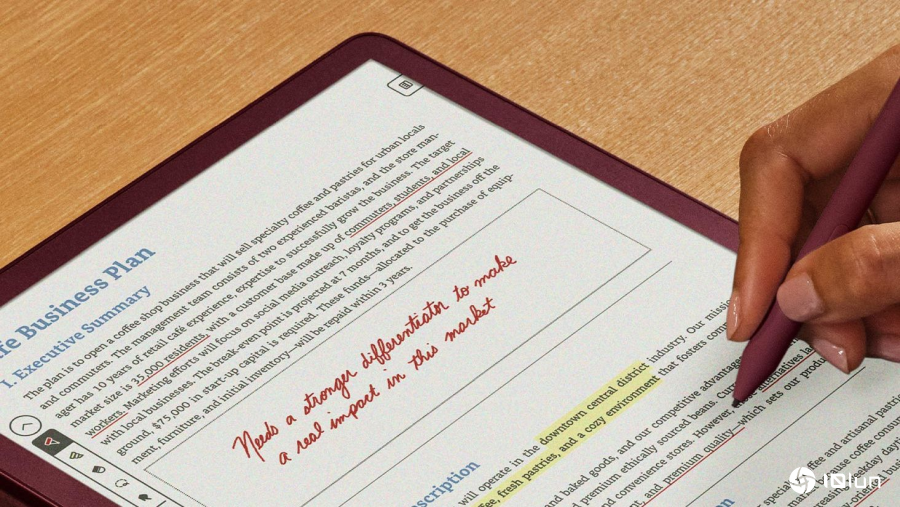 fe Business Plan
I. Executive Summary
The plan is to open a coffee shop business that will sell specialty coffee and pastries for urban locals
and commuters. The management team consists of two experienced baristas, and the store man-
ager has 10 years of retail café experience, expertise to successfully grow the business. The target
market size is 35,000 residents, with a customer base made up of commuters, students, and local
workers. Marketing efforts will focus on social media outreach, loyalty programs, and partnerships
with local businesses. The break-even point is projected at 7 months, and to get the business off the
ground, $75,000 in start-up capital is required. These funds—allocated to the purchase of equip-
ment, furniture, and initial inventory—will be repaid within 3 years.
Needs a stronger differentiator to make
a real impact in this market
scription
will operate in the downtown central district industry. Our miss
fee, fresh pastries, and a cozy environment that fosters com
and baked goods, and our competitive advantag
premium ethically sourced beans. Curr
and convenience stores. However, alternatives la
nt, and premium quality—which sets our produ
special ffee and artisanal pastri
cause coffee consu
reasing weekday dayti
ty-oriented busi
on
IQiun